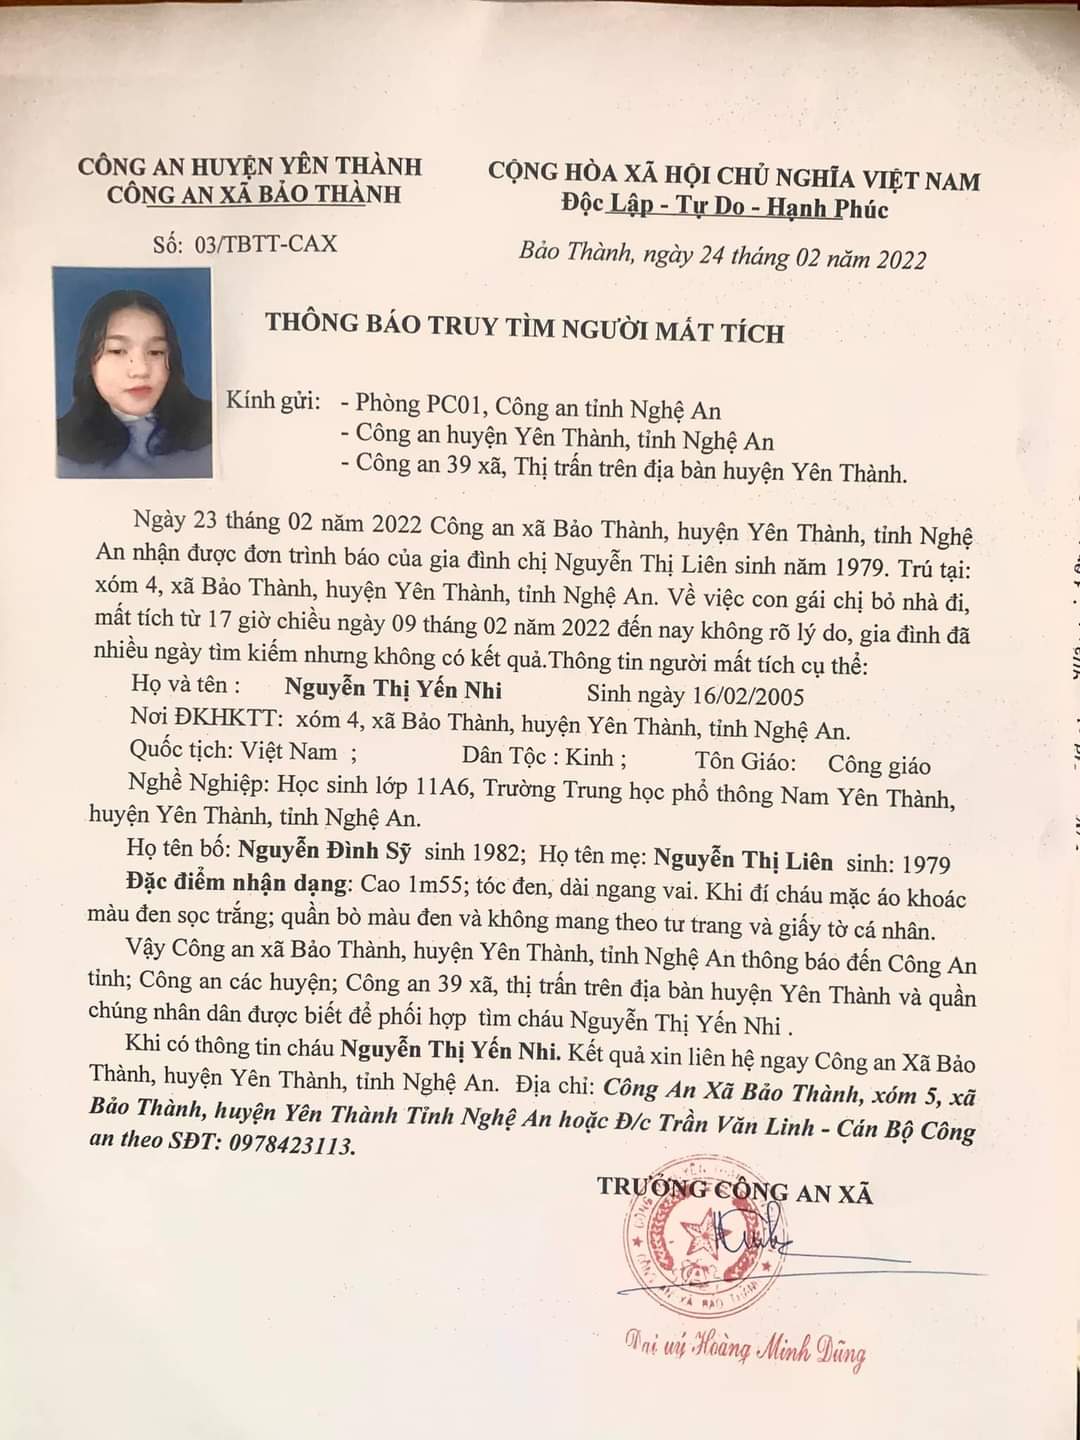 CÔNG AN HUYỆN YÊN THÀNH
CÔNG AN XÃ BẢO THÀNH
Số: 03/TBTT-CAX
CỘNG HÒA XÃ HỘI CHỦ NGHĨA VIỆT NAM
Độc Lập - Tự Do - Hạnh Phúc
Bảo Thành, ngày 24 tháng 02 năm 2022
THÔNG BÁO TRUY TÌM NGƯỜI MẤT TÍCH
Kính gửi: - Phòng PC01, Công an tỉnh Nghệ An
- Công an huyện Yên Thành, tỉnh Nghệ An
- Công an 39 xã, Thị trấn trên địa bàn huyện Yên Thành.
Ngày 23 tháng 02 năm 2022 Công an xã Bảo Thành, huyện Yên Thành, tỉnh Nghệ
An nhận được đơn trình báo của gia đình chị Nguyễn Thị Liên sinh năm 1979. Trú tại:
xóm 4, xã Bảo Thành, huyện Yên Thành, tỉnh Nghệ An. Về việc con gái chị bỏ nhà đi,
mất tích từ 17 giờ chiều ngày 09 tháng 02 năm 2022 đến nay không rõ lý do, gia đình đã
nhiều ngày tìm kiếm nhưng không có kết quả.Thông tin người mất tích cụ thể:
Họ và tên : Nguyễn Thị Yến Nhi Sinh ngày 16/02/2005
Nơi ĐKHKTT: xóm 4, xã Bảo Thành, huyện Yên Thành, tỉnh Nghệ An.
Quốc tịch: Việt Nam ; Dân Tộc : Kinh ; Tôn Giáo: Công giáo
Nghề Nghiệp: Học sinh lớp 11A6, Trường Trung học phổ thông Nam Yên Thành,
huyện Yên Thành, tỉnh Nghệ An.
Họ tên bố: Nguyễn Đình Sỹ sinh 1982; Họ tên mẹ: Nguyễn Thị Liên sinh: 1979
Đặc điểm nhận dạng: Cao 1m55; tóc đen, dài ngang vai. Khi đí cháu mặc áo khoác
màu đen sọc trắng; quần bò màu đen và không mang theo tư trang và giấy tờ cá nhân.
Vậy Công an xã Bảo Thành, huyện Yên Thành, tỉnh Nghệ An thông báo đến Công An
tỉnh; Công an các huyện; Công an 39 xã, thị trấn trên địa bàn huyện Yên Thành và quần
chúng nhân dân được biết để phối hợp tìm cháu Nguyễn Thị Yến Nhi .
Khi có thông tin cháu Nguyễn Thị Yến Nhi. Kết quả xin liên hệ ngay Công an Xã Bảo
Thành, huyện Yên Thành, tỉnh Nghệ An. Địa chỉ: Công An Xã Bảo Thành, xóm 5, xã
Bảo Thành, huyện Yên Thành Tỉnh Nghệ An hoặc Đ/c Trần Văn Linh - Cán Bộ Công
an theo SĐT: 0978423113.
TRƯỞNG CÔNG AN XÃ
CÔNG AN XÃ BẢO THÀNH
Đại uý Hoàng Minh Dũng